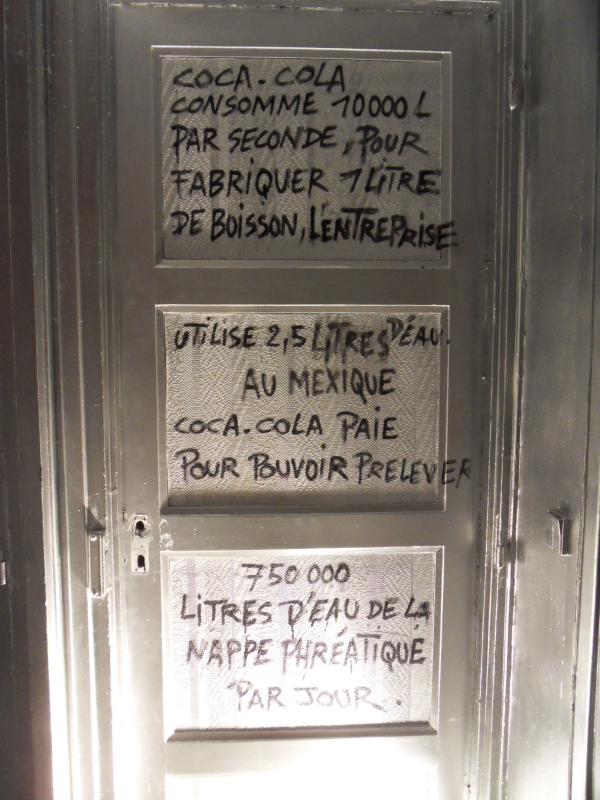 COCA-COLA
CONSOMME 10000 L
PAR SECONDE, POUR
FABRIQUER 1 LITRE
DE BOISSON, L'ENTREPRISE
UTILISE 2,5 LITRES D'ÉAU.
AU MEXIQUE
COCA-COLA PAIE
POUR POUVOIR PRELEVER
750 000
LITRES D'EAU DE LA
NAPPE PHRÉATIQUE
PAR JOUR.